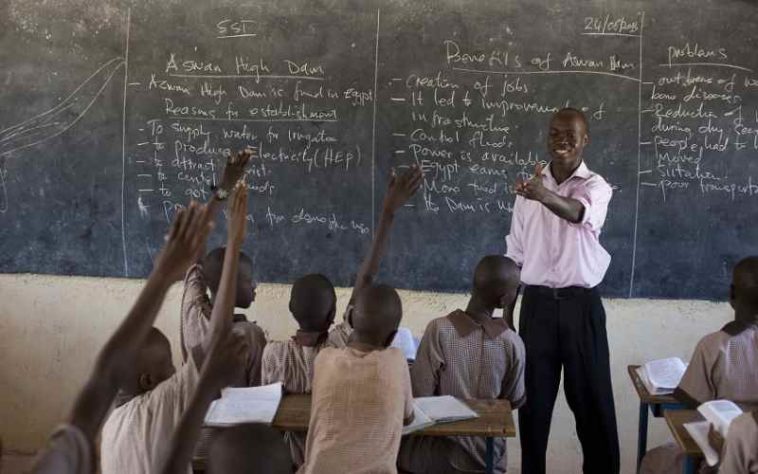 SST
Aswan High Dam
- Aswan High Dam is found in Egypt
Reasons for establishment
- To supply water for Irrigation
- to produce Electricity (HEP)
- to attract
- to control floods
- to
for domestic use
24/06/2015
Benefits of Aswan Dam
- Creation of jobs
- It led to improvement of
infrastructure
- Control floods
- Power is available
- Egypt earns
- More
- the Dam is
problems
- out break of
borne diseases
- Reduction of
during dry
- people had to
Moved
- Siltation
- poor transport